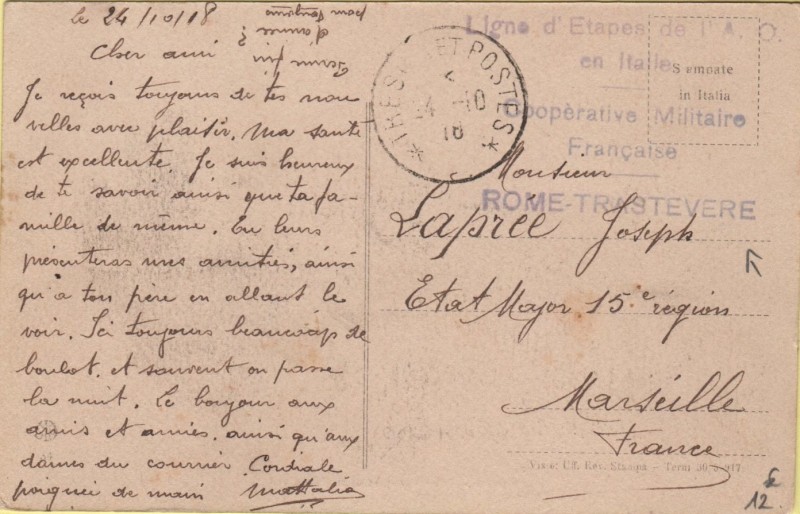 le 24/10/18
Cher ami
Je reçois toujours de tes nou
velles avec plaisir. Ma santé
est excellente. Je suis heureux
de te savoir ainsi que ta fa-
mille de même. Tu leurs
présenteras mes amitiés, ainsi
qu'à ton père en allant le
voir. Ici toujours beaucoup de
boulot. et souvent on passe
la nuit. Le bonjour aux
amis et amies. ainsi qu'aux
dames du courrier. Cordiale
poignée de main Mattalia
d'armes ?
TRESOR ET POSTES
24 10
18
Ligne d'Etapes de l'A. O.
en Italie
Coopèrative Militaire
Française
ROME-TRASTEVERE
Stampate
in Italia
Monsieur
Laprée Joseph
Etat Major 15e région
Marseille
France
Rev. Stampa - Terni 30-6-917
12